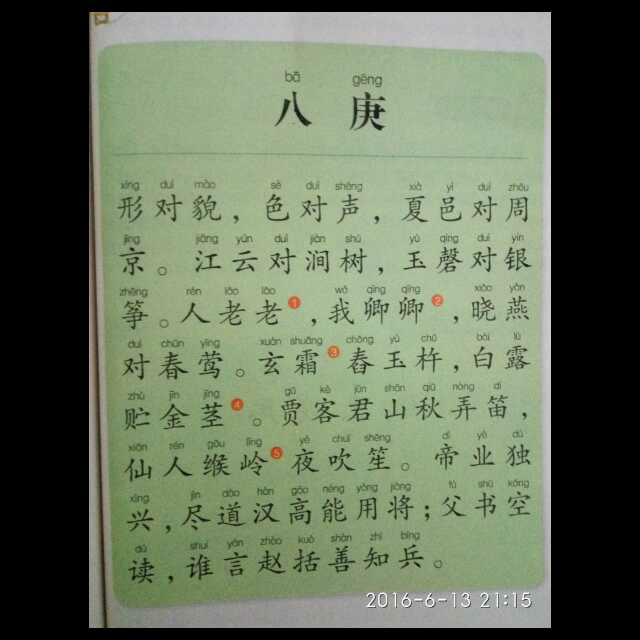 bā gēng
八 庚
xíng duì mào sè duì shēng xià yì duì zhōu
形对貌，色对声，夏邑对周
jīng jiāng yún duì jiàn shù yù qìng duì yín
京。江云对涧树，玉磬对银
zhēng rén lǎo lǎo wǒ qīng qīng xiǎo yàn
筝。人老老①，我卿卿②，晓燕
duì chūn yīng xuán shuāng chōng yù chǔ bái lù
对春莺。玄霜③舂玉杵，白露
zhù jīn jīng gǔ kè jūn shān qiū nòng dí
贮金茎④。贾客君山秋弄笛，
xiān rén gōu lǐng yè chuī shēng dì yè dú
仙人缑岭⑤夜吹笙。帝业独
xīng jìn dào hàn gāo néng yòng jiàng fù shū kōng
兴，尽道汉高能用将；父书空
dú shuí yán zhào kuò shàn zhī bīng
读，谁言赵括善知兵。
2016-6-13 21:15